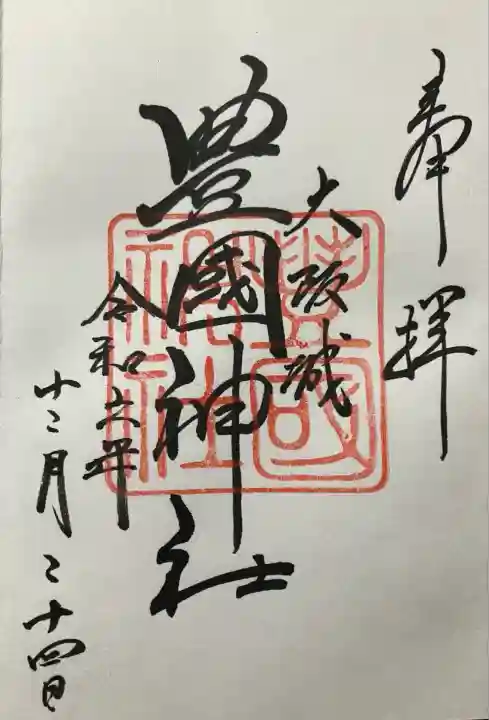 奉拝
大坂城
豊國神社
豊國神社
令和六年
十二月二十四日